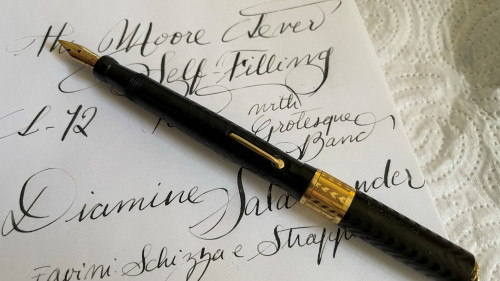 the Moore Lever
Self-Filling
L-72
with
Grotesque
Band
Diamine Sala nder
Favini Schizza e Strappa